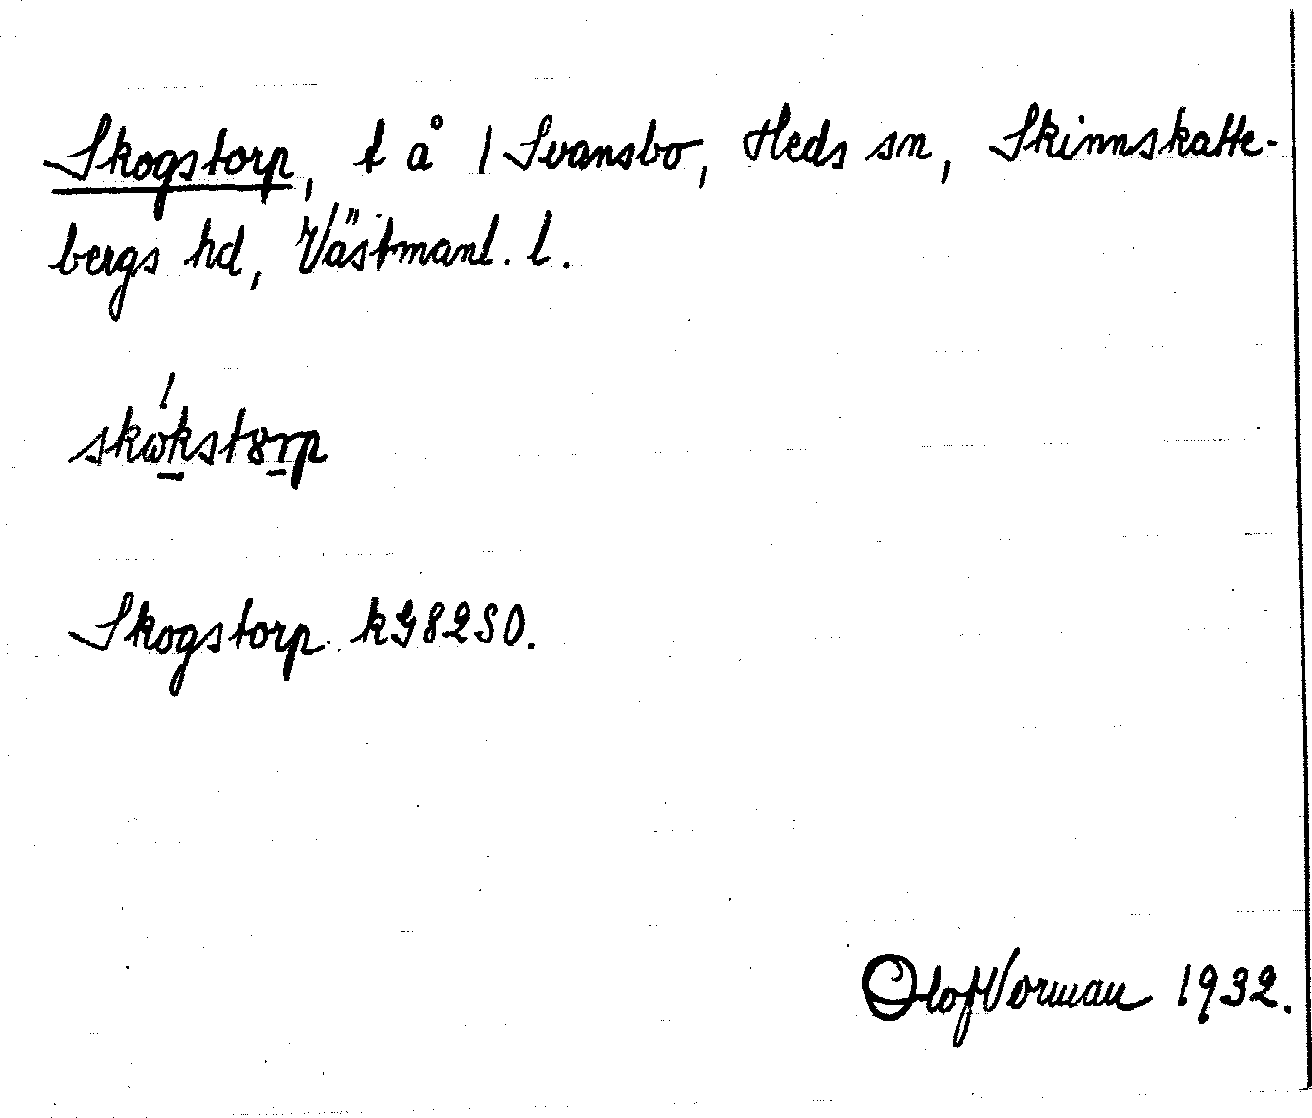 Skogstorp, t å 1 Svansbo, Heds sn, Skinnskatte-
bergs hd, Västmanl. l.
skώkstȣrp
Skogstorp kG82SO.
Olof Vorman 1932.